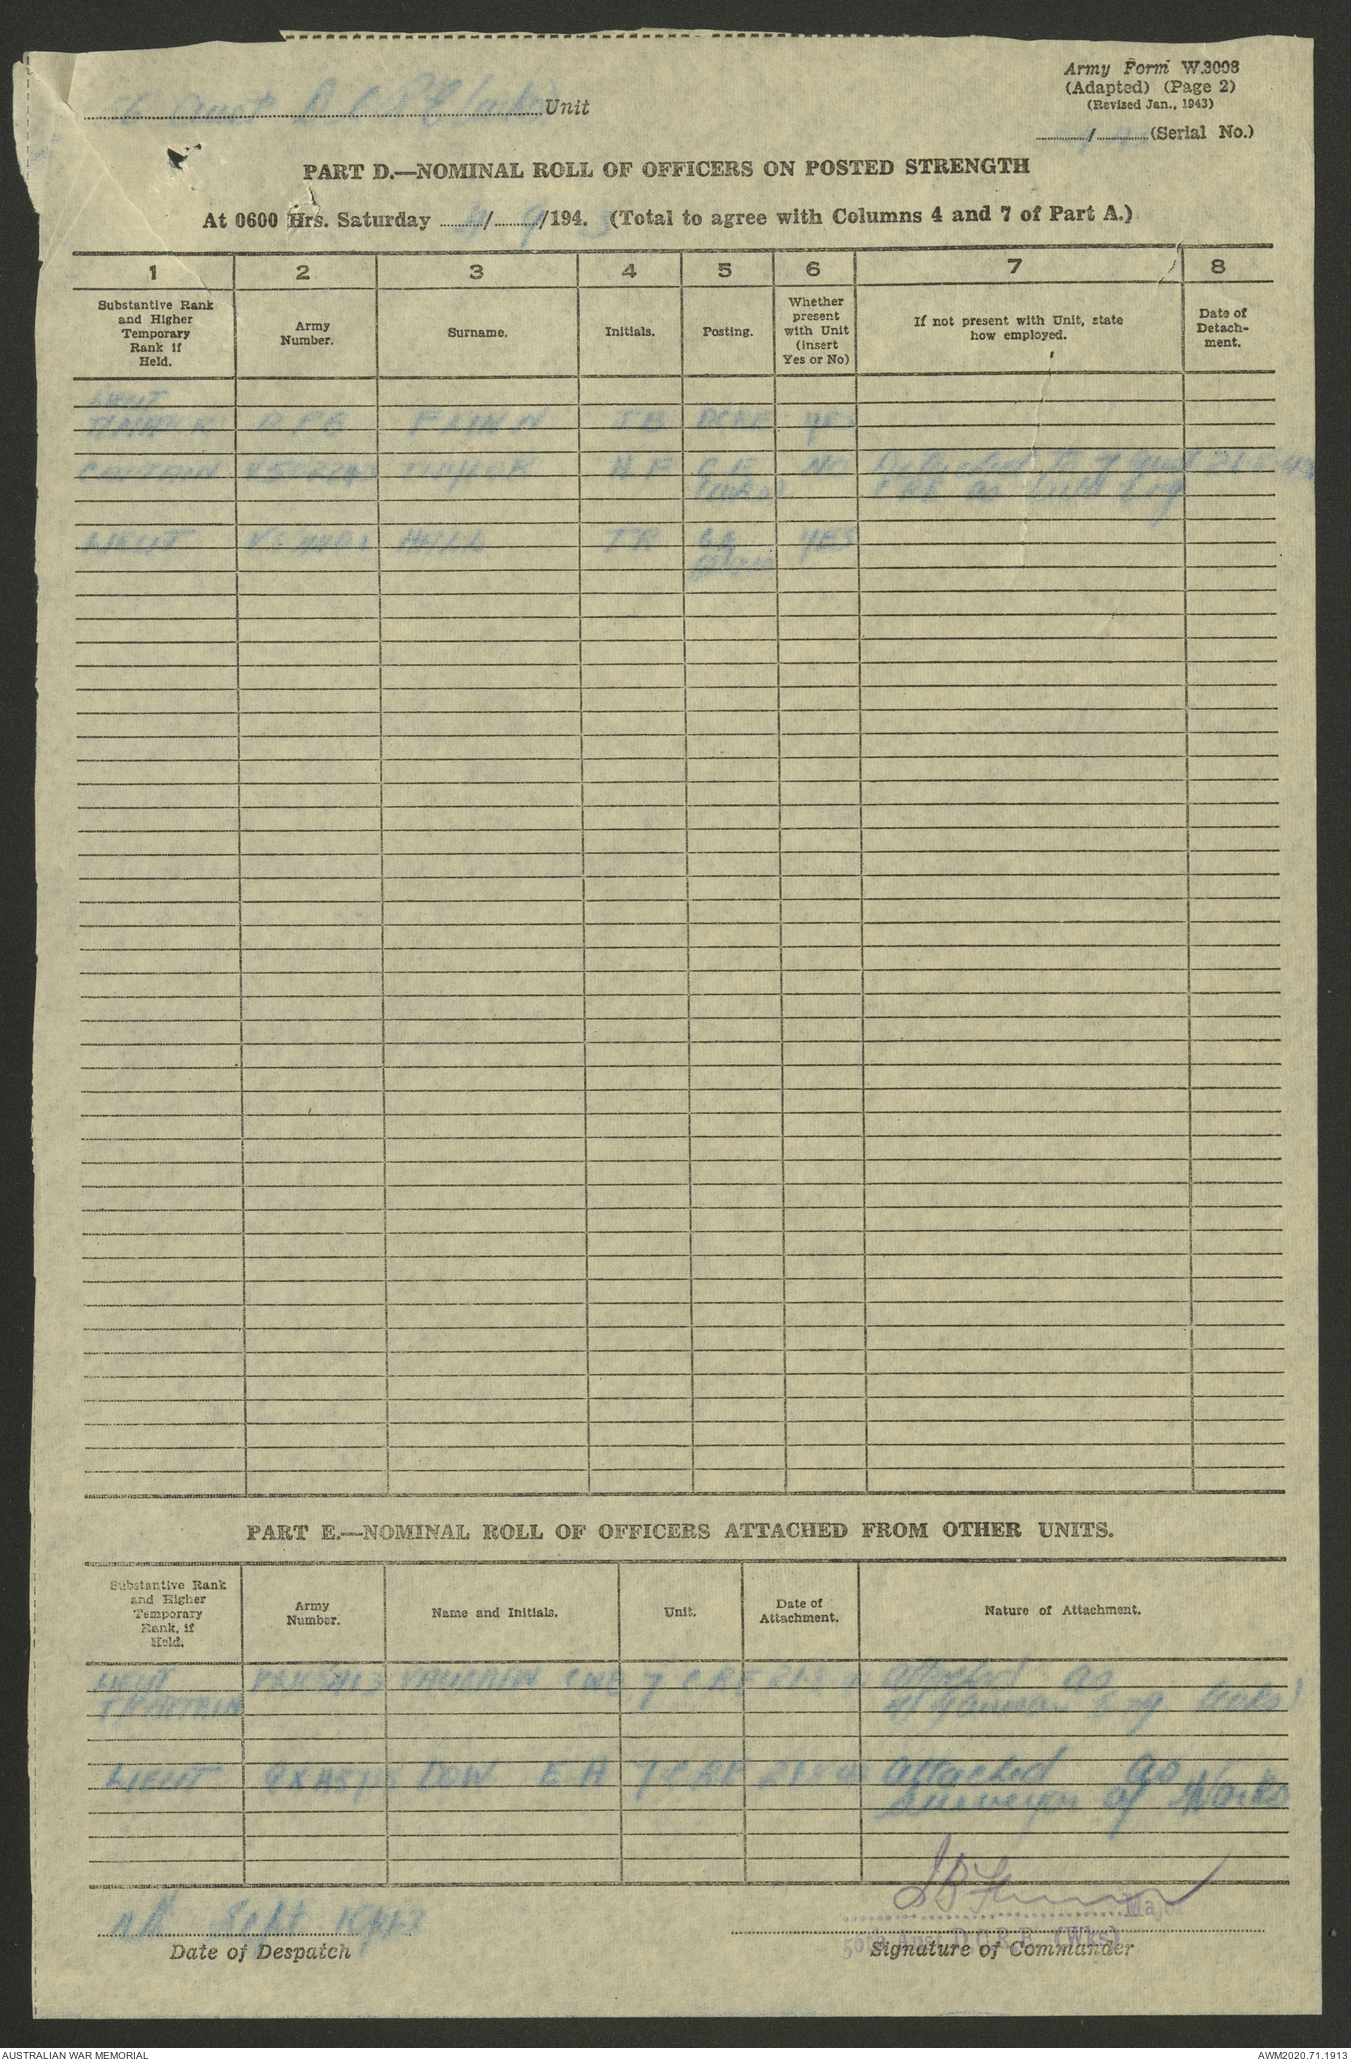 Army Form W.3008
(Adapted) (Page 2)
(Revised Jan., 1943)
Aust D.C.R.E. (Wks) Unit
/ (Serial No.)
PART D.—NOMINAL ROLL OF OFFICERS ON POSTED STRENGTH
At 0600 Hrs. Saturday 4/9/1943. (Total to agree with Columns 4 and 7 of Part A.)
1 2 3 4 5 6 7 8
Substantive Rank and Higher Temporary Rank if Held.
Army Number.
Surname.
Initials.
Posting.
Whether present with Unit (insert Yes or No)
If not present with Unit, state how employed.
Date of Detachment.
LIEUT
T/MAJOR FLINN J B DCRE YES
CAPTAIN TAYLOR H F NO Detached to 7
CRE as
LIEUT HALL J R YES
PART E.—NOMINAL ROLL OF OFFICERS ATTACHED FROM OTHER UNITS.
Substantive Rank and Higher Temporary Rank, if Held.
Army Number.
Name and Initials.
Unit.
Date of Attachment.
Nature of Attachment.
LIEUT VAUGHAN 7 CRE Attached as
T/CAPTAIN (Wks)
LIEUT DOW E A 7 CRE Attached as
Surveyor of Works
4th Sept 1943
Date of Despatch
J B Flinn Major
Aust D.C.R.E. (Wks)
Signature of Commander
AUSTRALIAN WAR MEMORIAL
AWM2020.71.1913